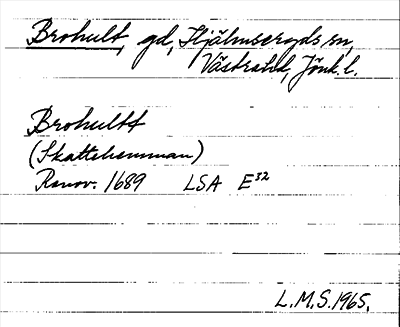 Brohult, gd, Hjälmseryds sn,
Västra hd, Jönk. l.
Brohultt
(Skattehemman)
Ranov. 1689 LSA E32
L.M.S. 1965.